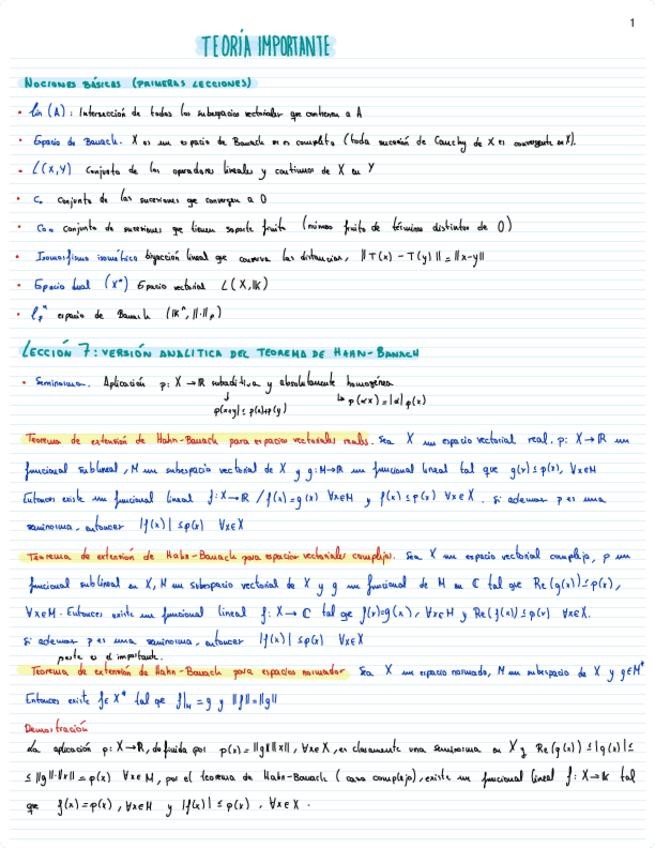 1
TEORÍA IMPORTANTE
NOCIONES BÁSICAS (PRIMERAS LECCIONES)
• Lin (A): Intersección de todos los subespacios vectoriales que contienen a A
• Espacio de Banach. X es un espacio de Banach si es completo (toda sucesión de Cauchy de X es convergente en X).
• L(X,Y) Conjunto de los operadores lineales y continuos de X en Y
• C₀ conjunto de las sucesiones qe convergen a 0
• C₀₀ conjunto de sucesiones qe tienen soporte finito (número finito de términos distintos de 0)
• Isomorfismo isométrico biyección lineal que conserva las distancias, ||T(x) - T(y)|| = ||x-y||
• Espacio dual (X*) Espacio vectorial L(X,𝕂)
• ℓₚⁿ espacio de Banach (𝕂ⁿ, ||·||ₚ)
LECCIÓN 7: VERSIÓN ANALITICA DEL TEOREMA DE HAHN-BANACH
• Seminorma. Aplicación p: X → ℝ subaditiva y absolutamente homogénea
p(x+y) ≤ p(x)+p(y) ↳ p(αx) = |α| p(x)
Teorema de extensión de Hahn-Banach para espacios vectoriales reales. Sea X un espacio vectorial real, p: X → ℝ un
funcional sublineal, M un subespacio vectorial de X y g: M → ℝ un funcional lineal tal que g(x) ≤ p(x), ∀x∈M
Entonces existe un funcional lineal f: X → ℝ / f(x) = g(x) ∀x∈M y f(x) ≤ p(x) ∀x∈X. Si ademas p es una
seminorma, entonces |f(x)| ≤ p(x) ∀x∈X
Teorema de extensión de Hahn-Banach para espacios vectoriales complejos. Sea X un espacio vectorial complejo, p un
funcional sublineal en X, M un subespacio vectorial de X y g un funcional de M en ℂ tal que Re(g(x)) ≤ p(x),
∀x∈M. Entonces existe un funcional lineal f: X → ℂ tal qe f(x) = g(x), ∀x∈M y Re(f(x)) ≤ p(x) ∀x∈X.
Si ademas p es una seminorma, entonces |f(x)| ≤ p(x) ∀x∈X
este es el importante.
Teorema de extensión de Hahn-Banach para espacios normados Sea X un espacio normado, M un subespacio de X y g∈M*
Entonces existe f∈X* tal qe f|ₘ = g y ||f|| = ||g||
Demostración
La aplicación p: X → ℝ, definida por p(x) = ||g|| ||x||, ∀x∈X, es claramente una seminorma en X y Re(g(x)) ≤ |g(x)| ≤
≤ ||g||·||x|| = p(x) ∀x∈M, por el teorema de Hahn-Banach (caso complejo), existe un funcional lineal f: X → 𝕂 tal
que f(x) = p(x), ∀x∈M y |f(x)| ≤ p(x), ∀x∈X.